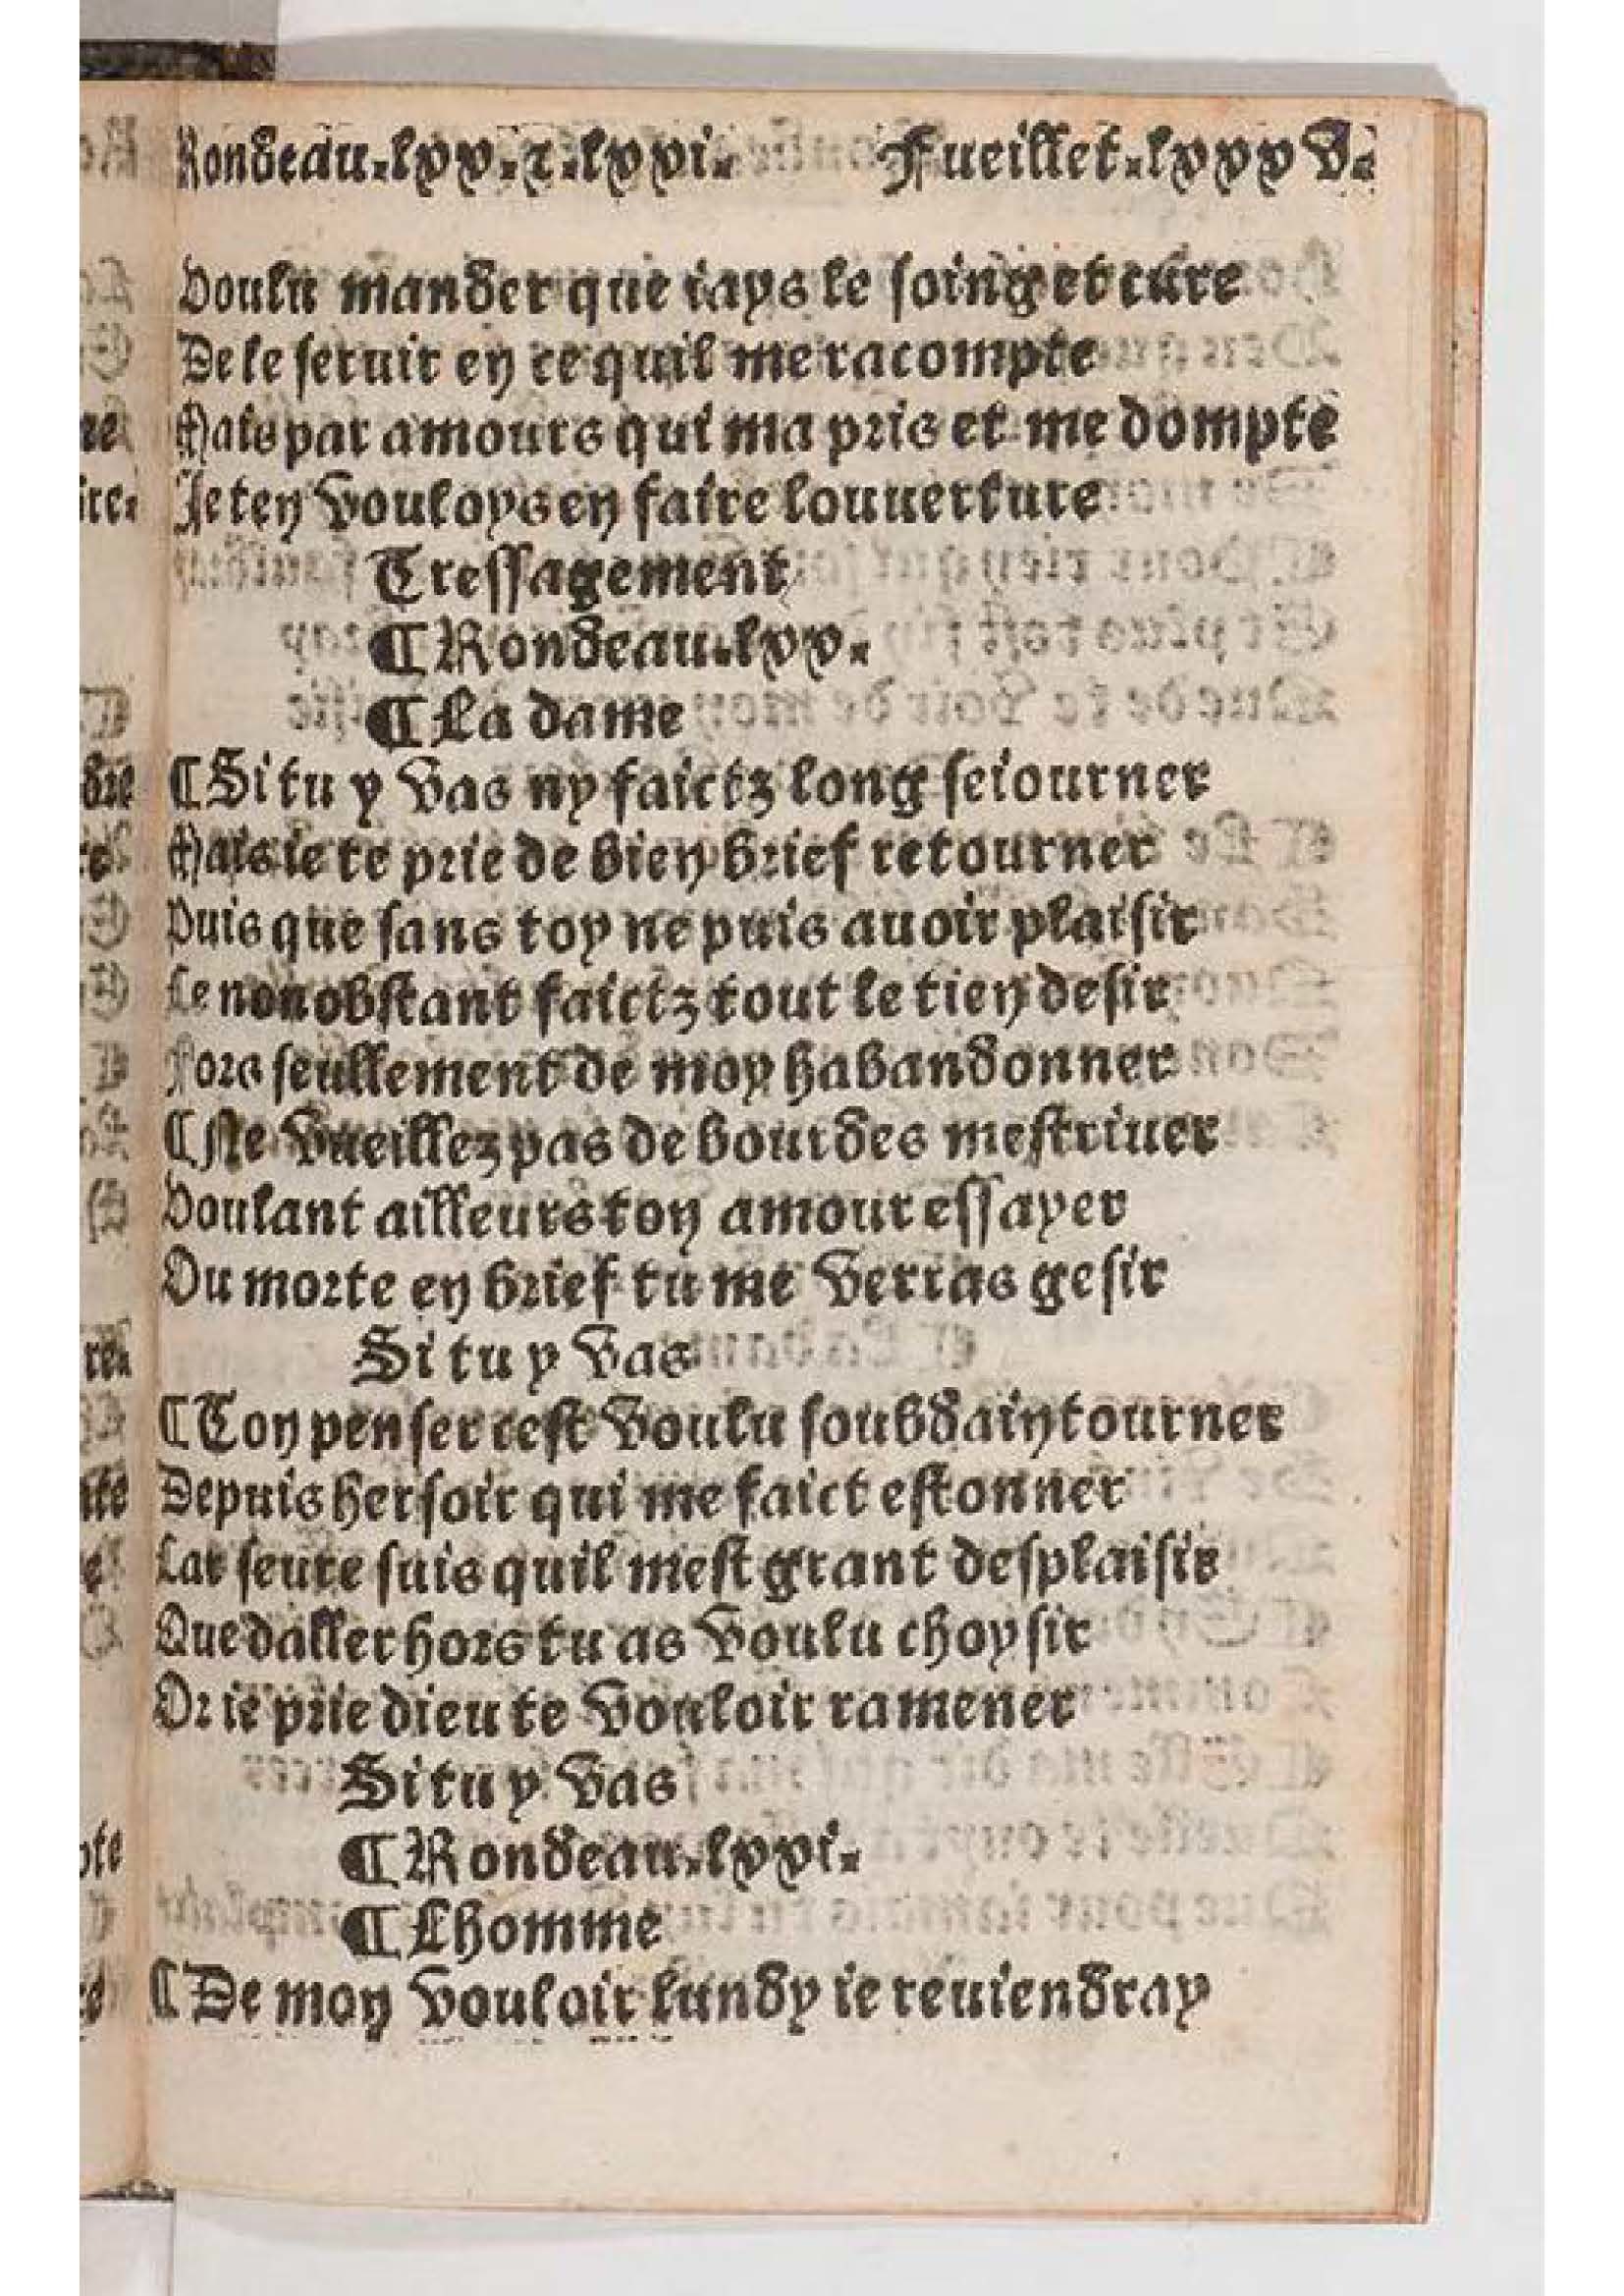 Rondeau.lxv.⁊.lxvi. Fueillet.lxxxv.
Voulu mander que iays le soing et cure
De le seruir en ce quil me racompte
Mais par amours qui ma pris et me dompte
Je ten vouloys en faire louuerture
Tressagement
¶ Rondeau.lxv.
¶ La dame
¶ Si tu y vas ny faictz long seiourner
Mais ie te prie de bien brief retourner
Puis que sans toy ne puis auoir plaisir
Ce nonobstant faictz tout le tien desir
Fors seullement de moy habandonner
¶ Ne vueillez pas de bourdes mestriuer
Voulant ailleurs ton amour essayer
Ou morte en brief tu me verras gesir
Si tu y vas
¶ Ton penser cest voulu soubdain tourner
Depuis hersoir qui me faict estonner
Car seure suis quil mest grant desplaisir
Que daller hors tu as voulu choysir
Or ie prie dieu te vouloir ramener
Si tu y vas
¶ Rondeau.lxvi.
¶ Lhomme
¶ De mon vouloir lundy ie reuiendray